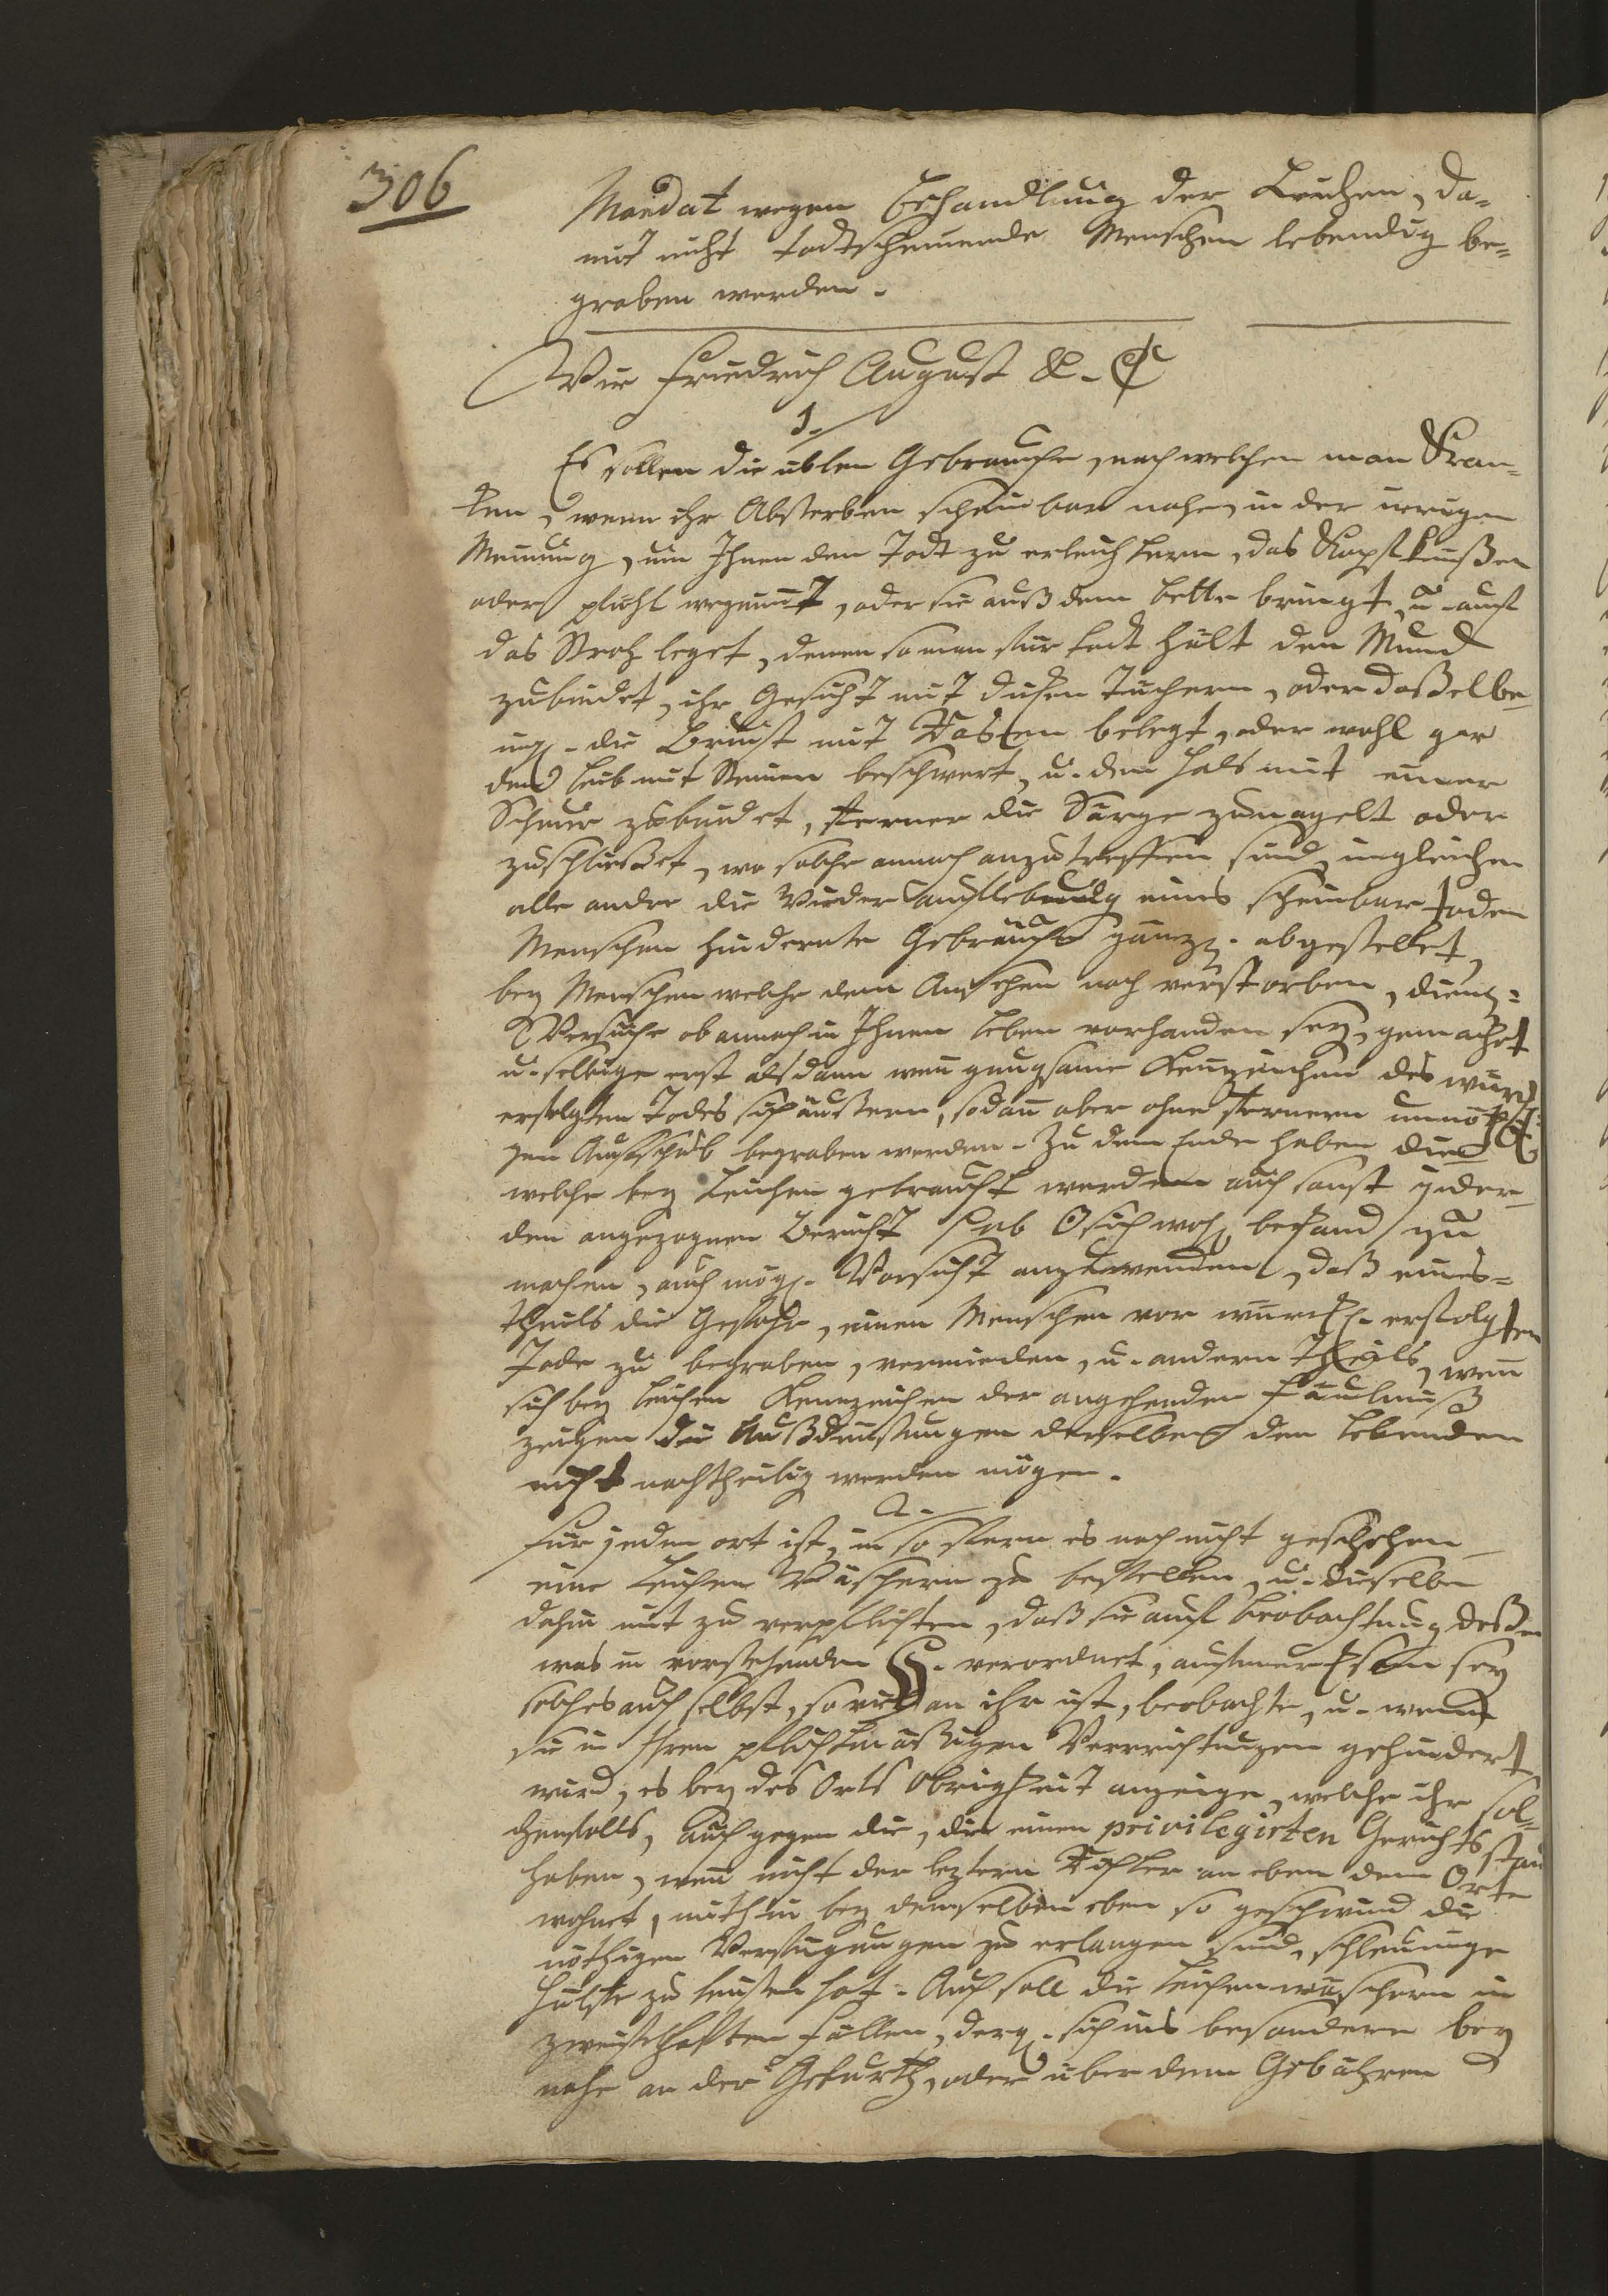 306
Mandat wegen Behandlung der Leichen, da-
mit nicht todtscheinende Menschen lebendig be-
graben werden.
Wir Friedrich August &. &
1.
Es sollen die üblen Gebräuche, nach welchen man Kran-
ken, wenn ihr Absterben scheinbar nahe, in der irrigen
Meinung, um Ihnen den Todt zu erleichtern, das Kopfküßen
oder pfühl wegnimt, oder sie auß dem bette bringt u. auf
das Stroh leget, denen so man für todt hält den Mund
zubindet, ihr Gesicht mit Tüchern, oder daßelbe
ingl. die Brust mit Rasen belegt, oder wohl gar
den leib mit Steinen beschwert, u. den Hals mit einer
Schnur zubindet, ferner die Särge zunagelt oder
zuschließet, wo solche annoch anzutreffen sind, ingleichen
alle andre die Wieder auflebung eines scheinbar toden
Menschen hindernte Gebräuche gänzl. abgestellet,
bey Menschen welche dem Ansehen nach verstorben, dienl-
Versuche ob annoch in Ihnen Leben vorhanden sey, gemacht
u. selbige erst alsdann wen gnugsame Kennzeichen des würkl.
erfolgten Todes sich äußern, sodan aber ohne fernern unnöthi-
gen Aufschub begraben werden. Zu dem Ende haben die
welche bey Leichen gebraucht werden auch sonst jeder
den angezognen Bericht wohl befand zu
machen, auch mögl. Vorsicht anzuwenden, daß eines-
theils die Gefahr, einen Menschen vor würckl. erfolgten
Tode zu begraben, vermieden, u. andern Theils, wen
sich bey leichen Kennzeichen der angehenden Fäulniß
zeigen die Außdünstungen derselben den Lebenden
nicht nachtheilig werden mögen.
2.
Für jeden ort ist, in so fern es noch nicht geschehen
eine Leichen Wäscherin zu bestellen, u. dieselbe
dahin mit zu verpflichten, daß sie auf Beobachtung deßen
was in vorstehenden §. verordnet, aufmerksam sey
solches auch selbst, so viel an ihr ist, beobachte, u. wenn
sie in Ihren pflichtmäßigen Verrichtungen gehindert
wird, es bey des Orts Obrigkeit anzeige, welche ihr sol-
chenfalls, auch gegen die, die einen privilegirten Gerichtsstand
haben, wen nicht der leztern Richter an eben dem Orte
wohnet, mithin bey demselben eben so geschwind die
nöthigen Verfügungen zu erlangen sind, schleunige
Hülfe zu leisten hat. Auch soll die Leichenwäscherin in
zweifelhaften Fällen, dergl. sich ins besondere bey
nahe an der Geburth, oder über dem Gebähren